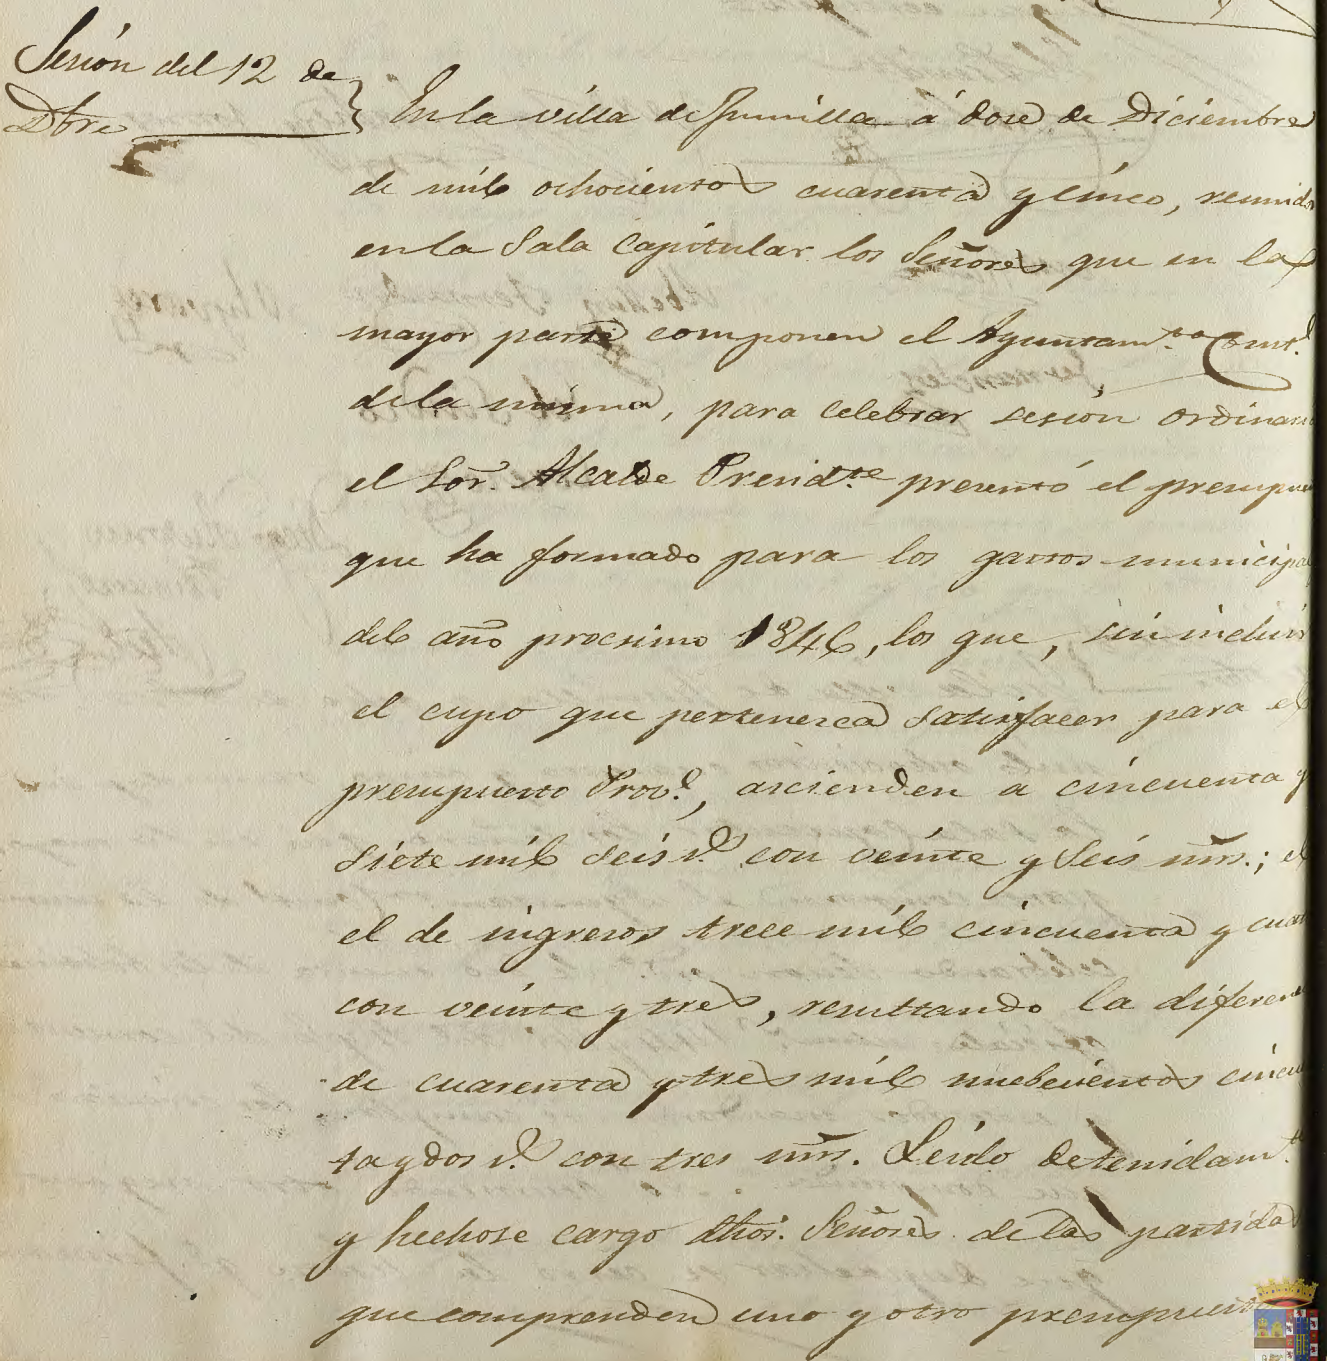 Sesión del 12 de
Dbre
En la villa de Jumilla á dose de Diciembre
de mil ochocientos cuarenta y cinco, reunido
en la Sala Capitular los Señores que en la
mayor parte componen el Ayuntam.to Const.l
de la misma, para celebrar sesión ordinari
el Sor. Alcalde Presid.te presentó el presupue
que ha formado para los gastos municipa
del año procsimo 1846, los que, sin incluir
el cupo que pertenesca satisfacer para el
presupuesto Prov.l, ascienden a cincuenta y
siete mil seis r.s con veinte y seis mrs.; el
el de ingresos trece mil cincuenta y cuat
con veinte y tres, resultando la diferen
de cuarenta y tres mil nuebecientos cincu
ta y dos r.s con tres mrs. Leido detenidam.te
y hechose cargo dhos. Señores de las partidas
que comprenden uno y otro presupuesto